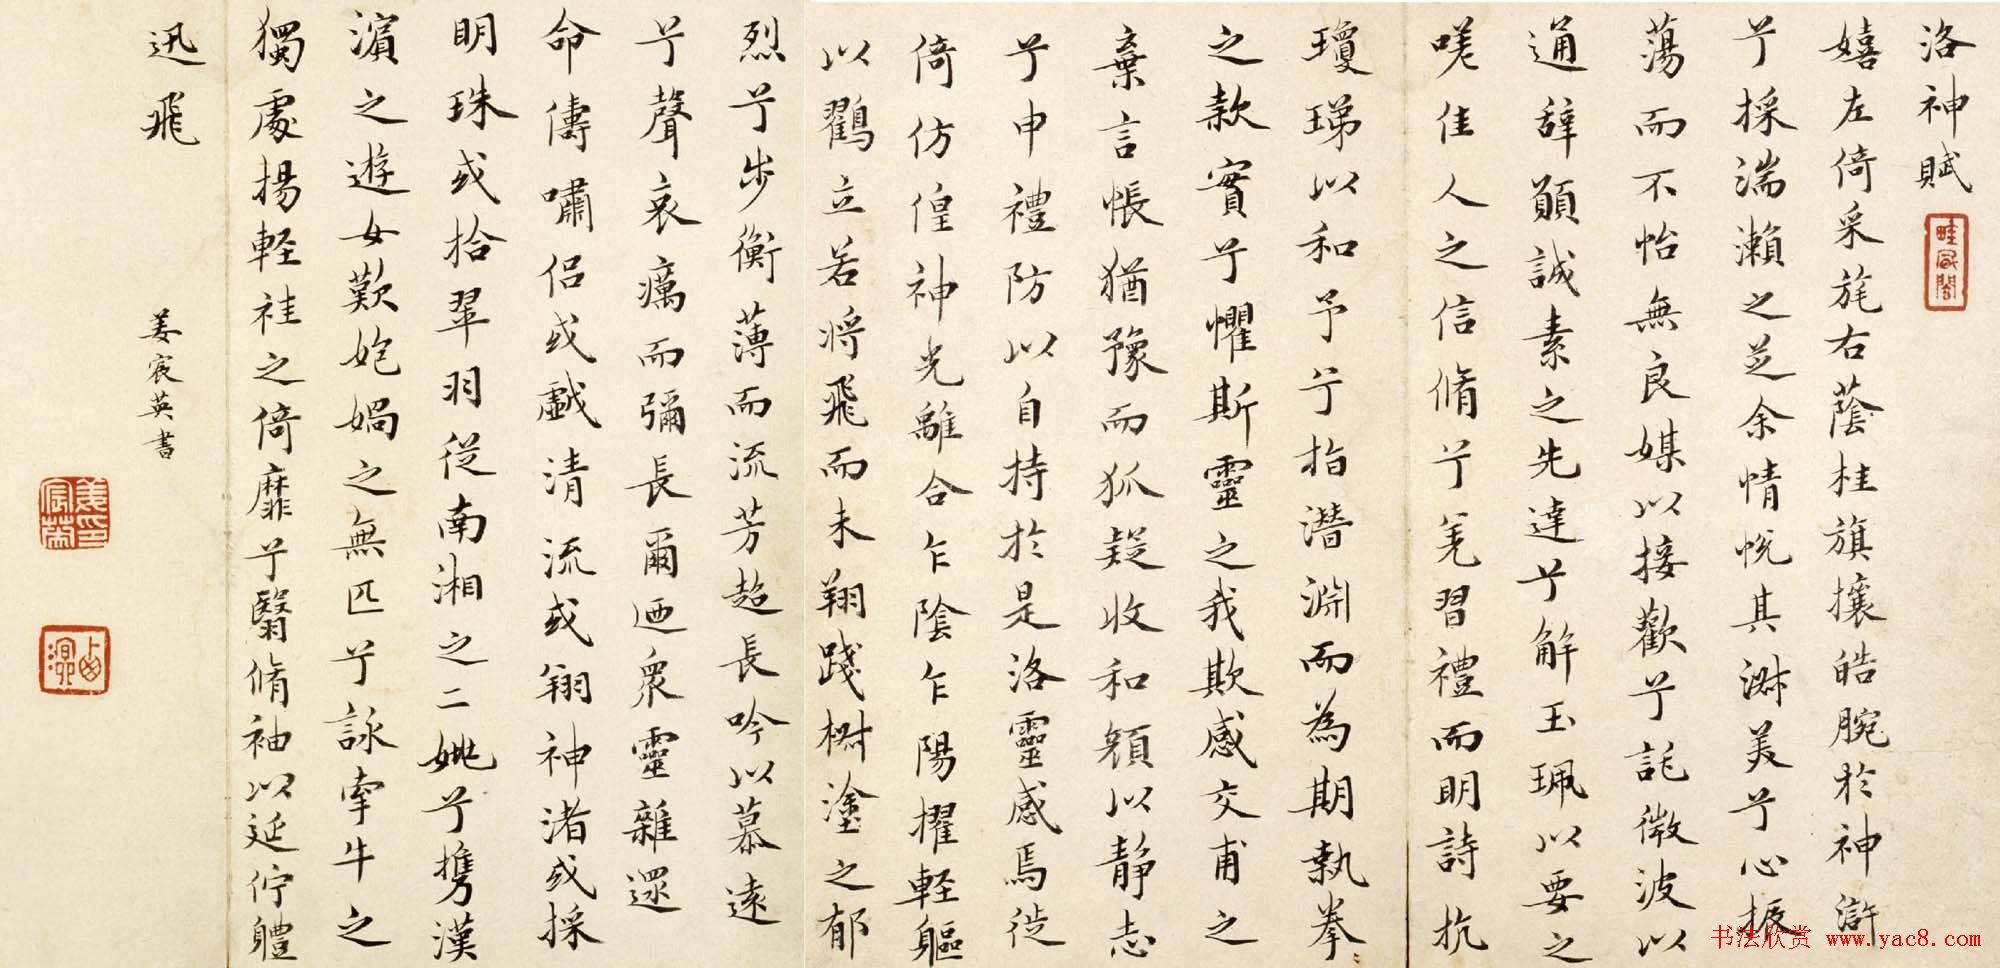 洛神賦
嬉左倚采旄右蔭桂旗攘皓腕於神滸
兮採湍瀨之芝余情悅其淋美兮心振
蕩而不怡無良媒以接歡兮託微波以
通辞願誠素之先達兮解玉珮以要之
嗟佳人之信脩兮羌習禮而明詩抗
瓊珶以和予兮指潛淵而為期執拳
之款實兮懼斯靈之我欺感交甫之
棄言悵猶豫而狐疑收和顏以静志
兮申禮防以自持於是洛靈感焉徙
倚仿偟神光離合乍陰乍陽擢軽軀
以鶴立若将飛而未翔踐椒塗之郁
烈兮步衡薄而流芳超長吟以慕遠
兮聲哀癘而彌長爾迺衆靈雜遝
命儔嘯侣或戯清流或翔神渚或採
明珠或拾翠羽従南湘之二姚兮攜漢
濵之遊女歎匏媧之無匹兮詠牽牛之
獨處揚軽袿之倚靡兮翳脩袖以延佇體
迅飛
姜宸英書
書法欣赏 www.yac8.com